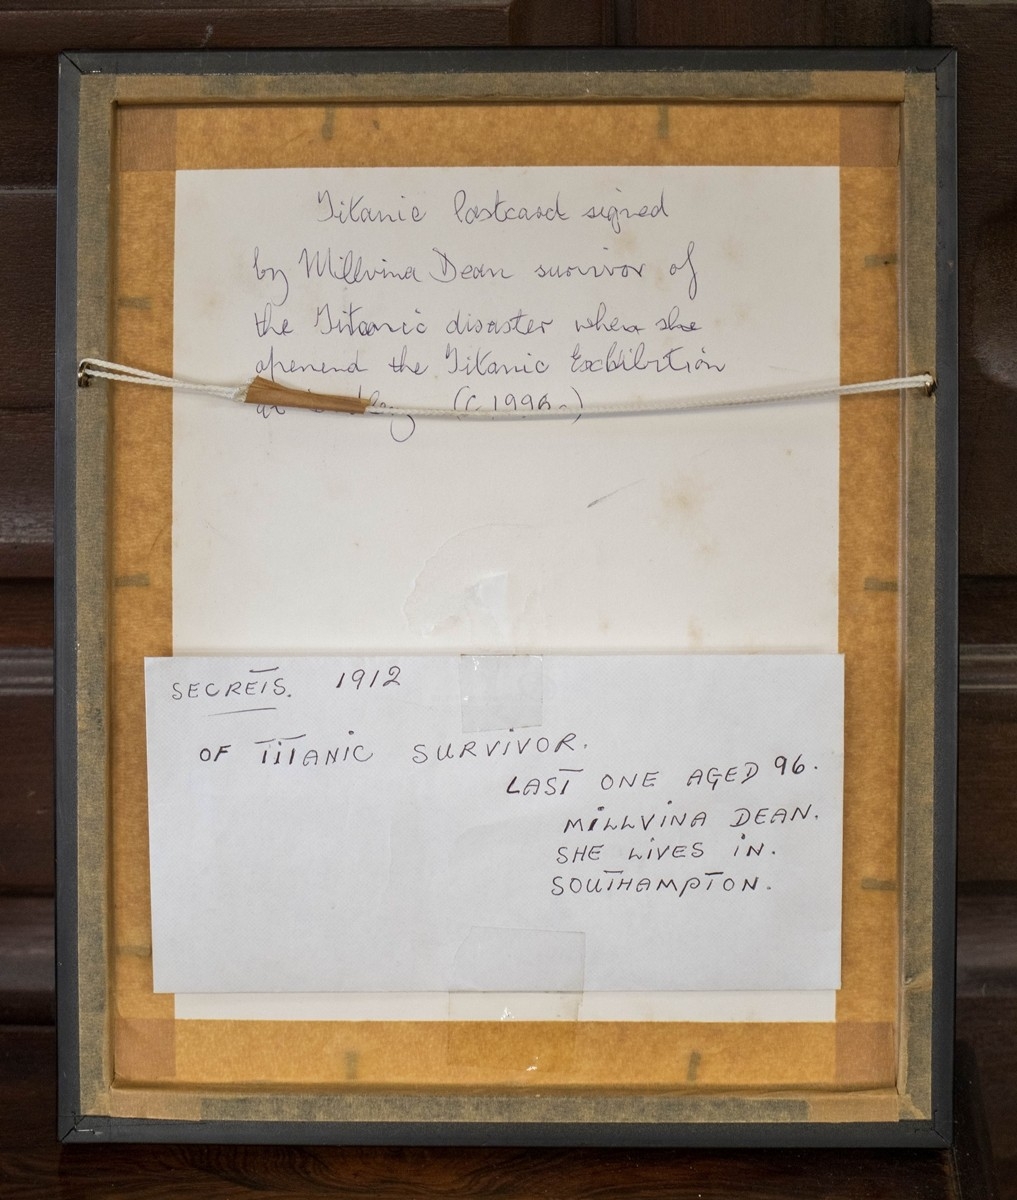 Titanic Postcard signed
by Millvina Dean survivor of
the Titanic disaster when she
openend the Titanic Exbibition
(C 1996.)
SECRETS. 1912
OF TITANIC SURVIVOR.
LAST ONE AGED 96.
MILLVINA DEAN.
SHE LIVES IN.
SOUTHAMPTON.